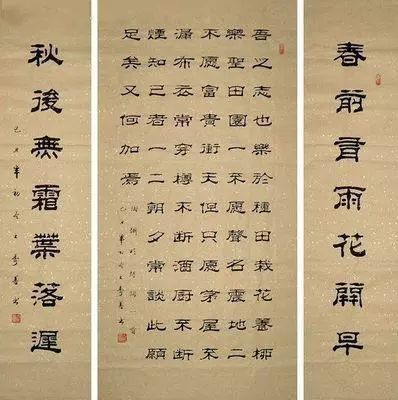 春前有雨花開早
吾之志也樂於種田栽花養柳
樂聖田園一不愿聲名震地二
不愿富貴衝天但只愿茅屋不
漏布衣常穿樽不斷酒厨不斷
煙知己者一二朝夕常談此願
足矣又何加焉
秋後無霜葉落遲